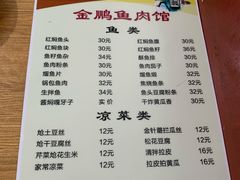 金鹏鱼肉馆
鱼 类
红焖鱼头 30元 红焖鱼腹 30元
红焖鱼块 30元 红焖鱼籽 30元
鱼籽鱼杂 30元 酥鱼排 30元
鱼肉粉条 30元 鱼肉茄子 30元
熘鱼片 30元 熘鱼段 30元
锅包鱼肉 32元 焦熘鱼条 32元
生拌鱼 34元 鱼头豆腐粉条 32元
酱焖嘎牙子 实价 干炸黄瓜香 30元
凉菜类
炝土豆丝 12元 金针蘑拦瓜丝 12元
炝干豆腐丝 12元 松花豆腐 12元
芹菜炝花生米 12元 清拌拉皮 12元
家常凉菜 12元 拉皮拍黄瓜 16元